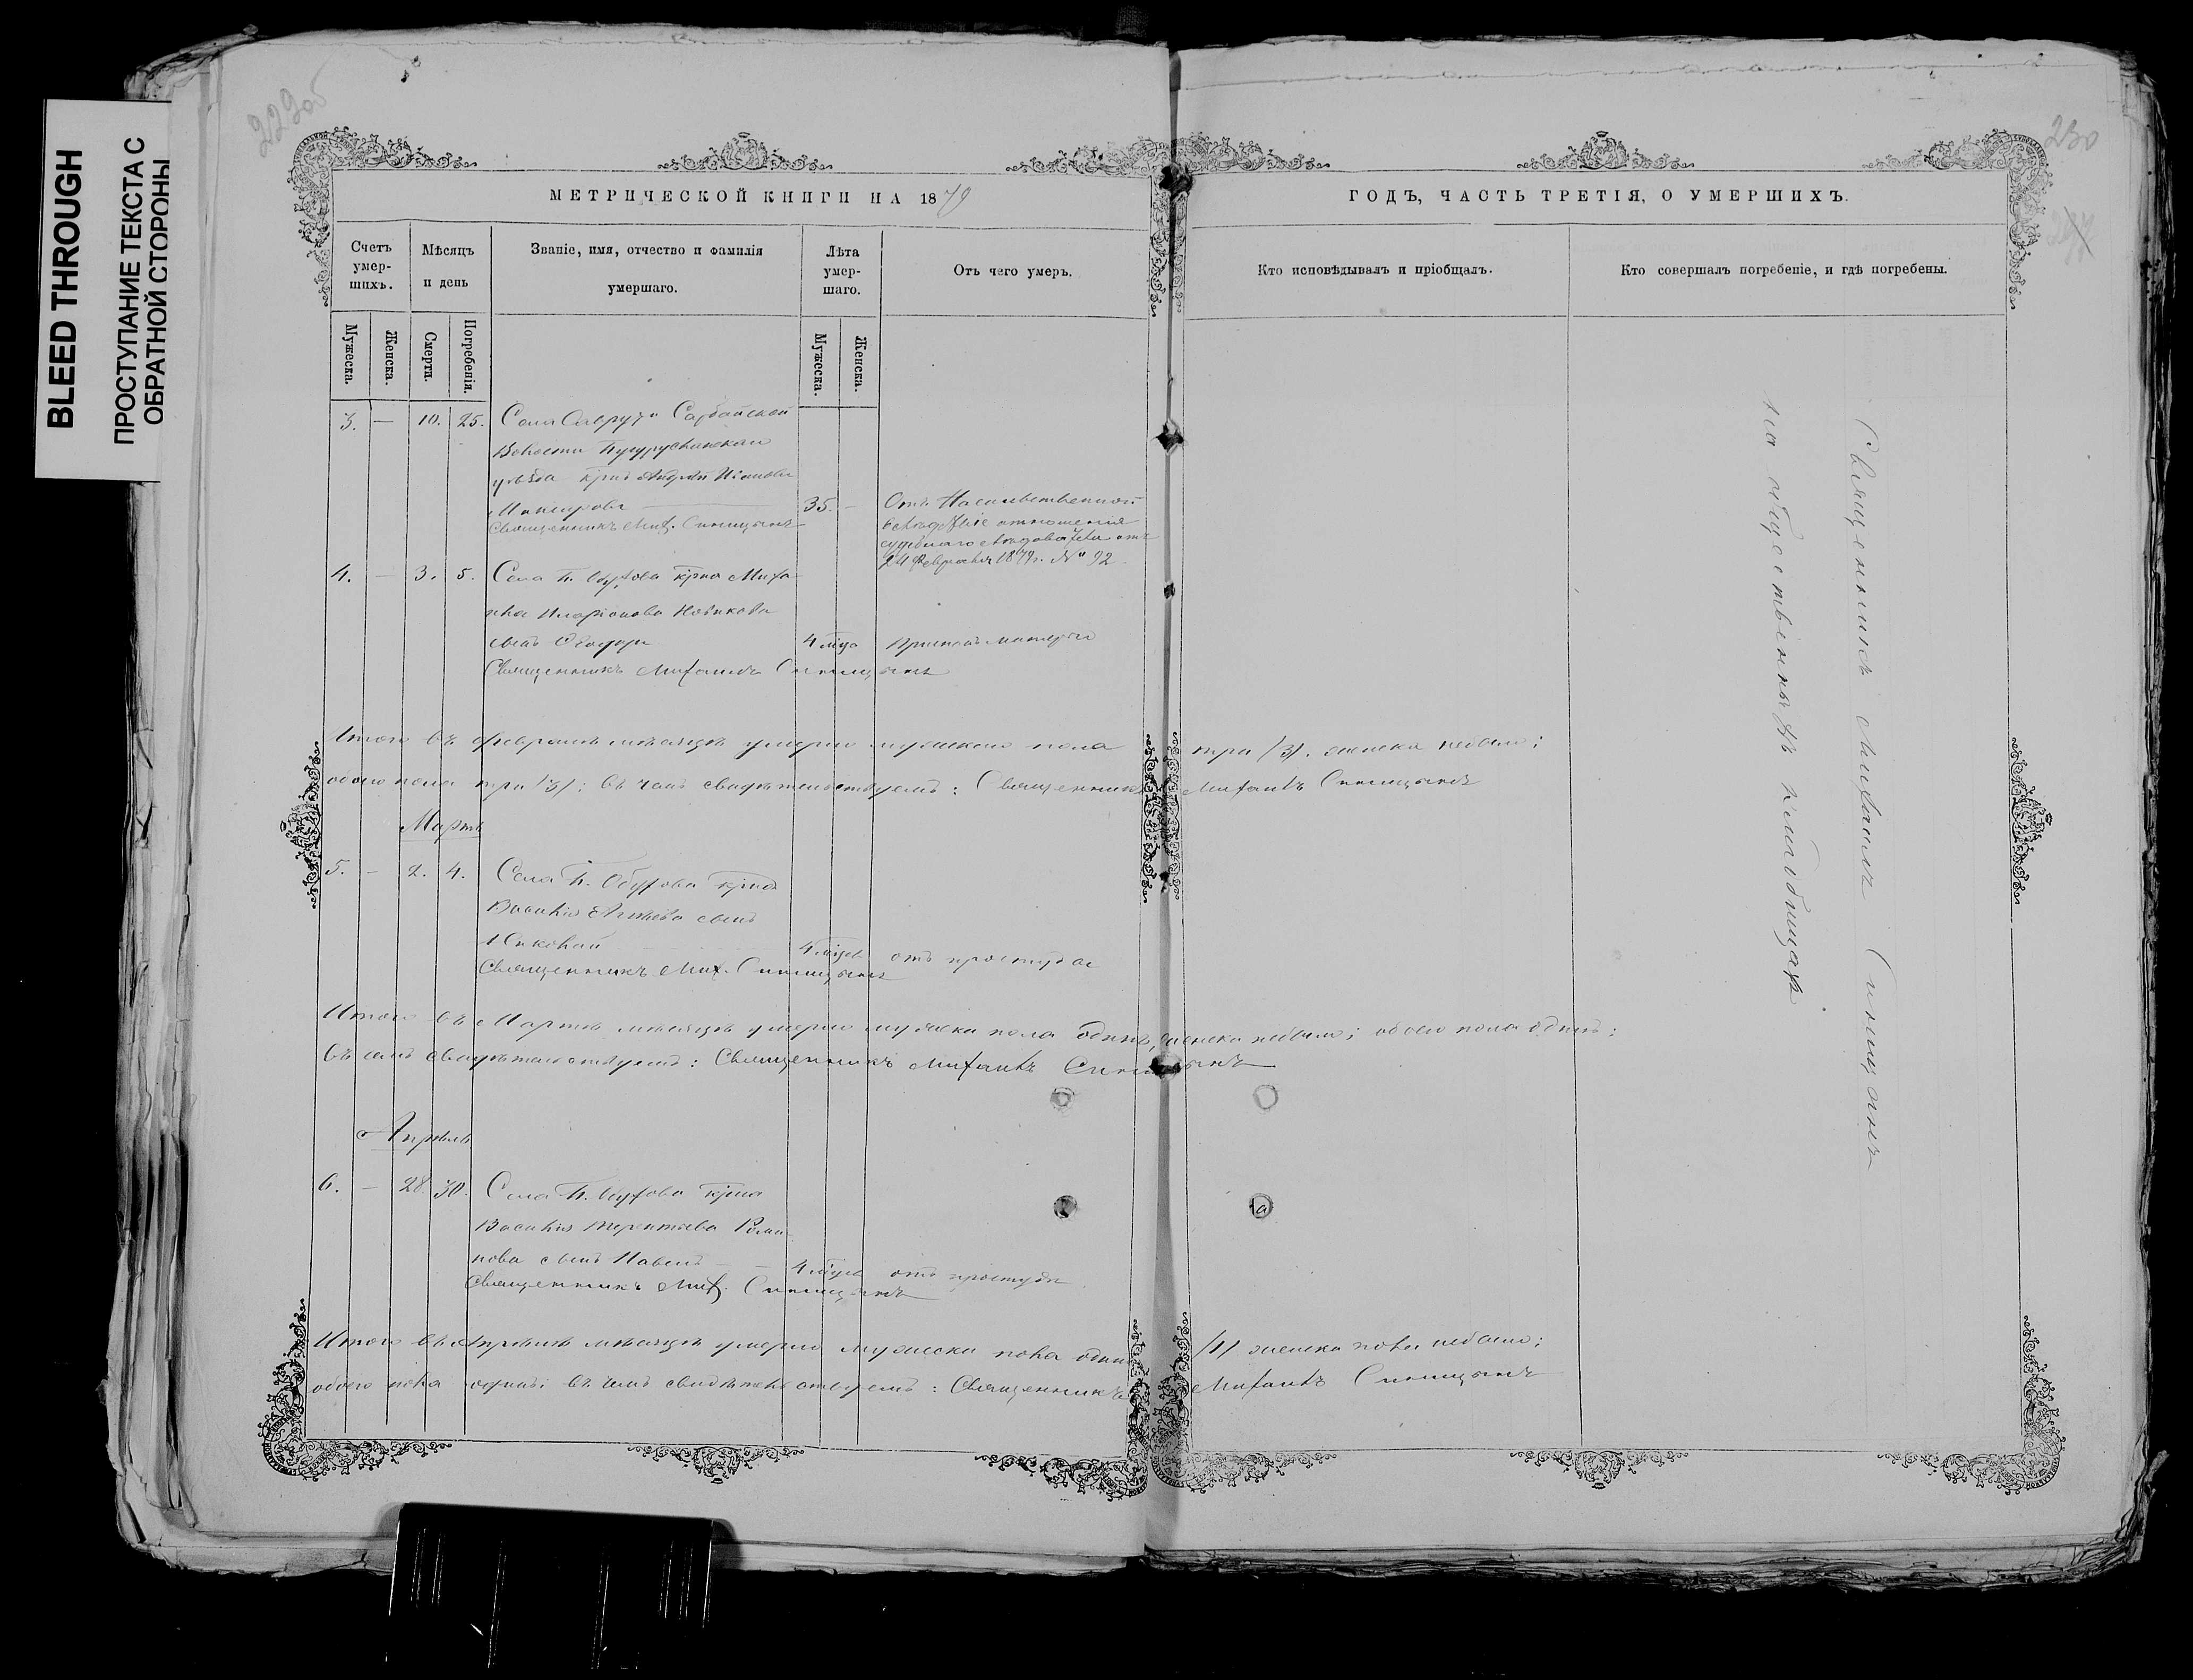 BLEED THROUGH
ПРОСТУПАНИЕ ТЕКСТА С
ОБРАТНОЙ СТОРОНЫ
229об
230
МЕТРИЧЕСКОЙ КНИГИ НА 1879
ГОДЪ, ЧАСТЬ ТРЕТІЯ, О УМЕРШИХЪ.
Счетъ умер-шихъ.
Мѣсяцъ и день
Званіе, имя, отчество и фамилія умершаго.
Лѣта умер-шаго.
Отъ чего умеръ.
Кто исповѣдывалъ и пріобщалъ.
Кто совершалъ погребеніе, и гдѣ погребены.
Мужеска.
Женска.
Смерти.
Погребенія.
Мужеска.
Женска.
3. — 10. 25. Села Саврузи Сарбайской
Волости Бугурусланскаго
уѣзда Андрей
35. — Отъ Насильственной
Священникъ Мих. Синицынъ
вслѣдствіе отношенія
судебнаго слѣдователя отъ
24 Февраля 1879 г. № 92.
4. — 3. 5. Села Миха-
ила Иларіонова Новикова
сынъ
Священникъ Михаилъ Синицынъ
Итого въ Февралѣ мѣсяцѣ умерло мужскаго пола три /3/. женска небыло;
обоего пола три /3/; въ чемъ свидѣтельствуемъ: Священникъ Михаилъ Синицынъ
Мартъ
5. — 2. 4. Села
Василія сынъ
Николай — 4 отъ простуды
Священникъ Мих. Синицынъ
Итого въ Мартѣ мѣсяцѣ умерло мужска пола одинъ, женска небыло; обоего пола одинъ:
въ чемъ свидѣтельствуемъ: Священникъ Михаилъ Синицынъ
Апрѣль
6. — 28. 30. Села
Василія Терентьева Рома-
нова сынъ Павелъ — 4 отъ простуды
Священникъ Мих. Синицынъ
Итого въ Апрѣлѣ мѣсяцѣ умерло мужска пола одинъ /1/ женска пола небыло;
обоего пола одинъ; въ чемъ свидѣтельствуемъ: Священникъ Михаилъ Синицынъ
Священникъ Михаилъ Синицынъ
на общественныхъ кладбищахъ